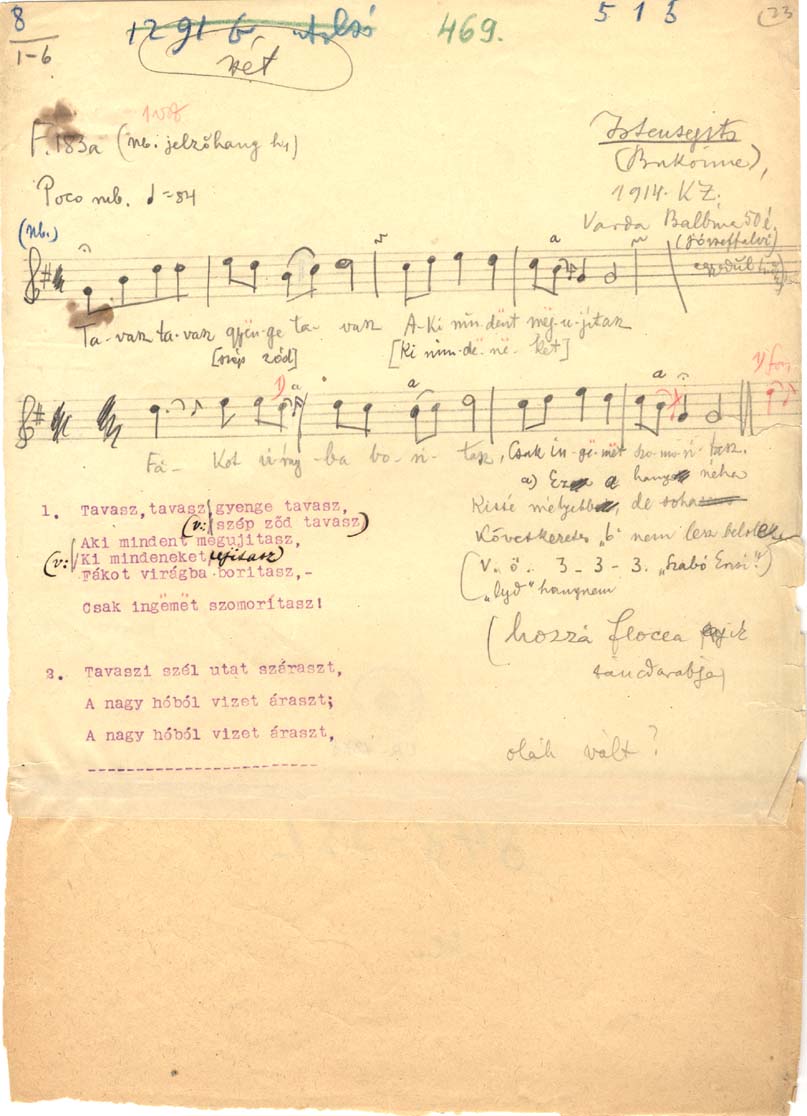 8
1-6
1291 b utolsó
469.
5 1 5
23
vét
F. 183a (nb. jelzőhang h1)
Istensegíts
(Bukovina),
Poco rub. = 84
1914. KZ.
Varda Balbina 50 é.
(nb.)
(józseffalvi)
egyedül
a
Ta-vasz ta-vasz gyën-ge ta-vasz A-Ki min-dënt mëg-u-jitasz
[szép ződ] [Ki min-dë-në-ket]
1) a a a
Fá-Kot virág-ba bo-rí-tasz, Csak in-gë-mët szo-mo-rí-tasz.
a) Ez a hang néha
1. Tavasz, tavasz gyenge tavasz,
(v: szép ződ tavasz)
Aki mindent megujitasz,
(v: Ki mindeneket ujitasz)
Fákot virágba boritasz,-
Csak ingëmët szomorítasz!
Kissé mélyebb, de soha
Következetes „b" nem lesz belőle
(V. ö. 3-3-3. „Szabó Erzsi")
„lyd" hangnem
(hozzá flocea egyik
táncdarabja)
2. Tavaszi szél utat száraszt,
A nagy hóból vizet áraszt;
A nagy hóból vizet áraszt,
oláh vált?